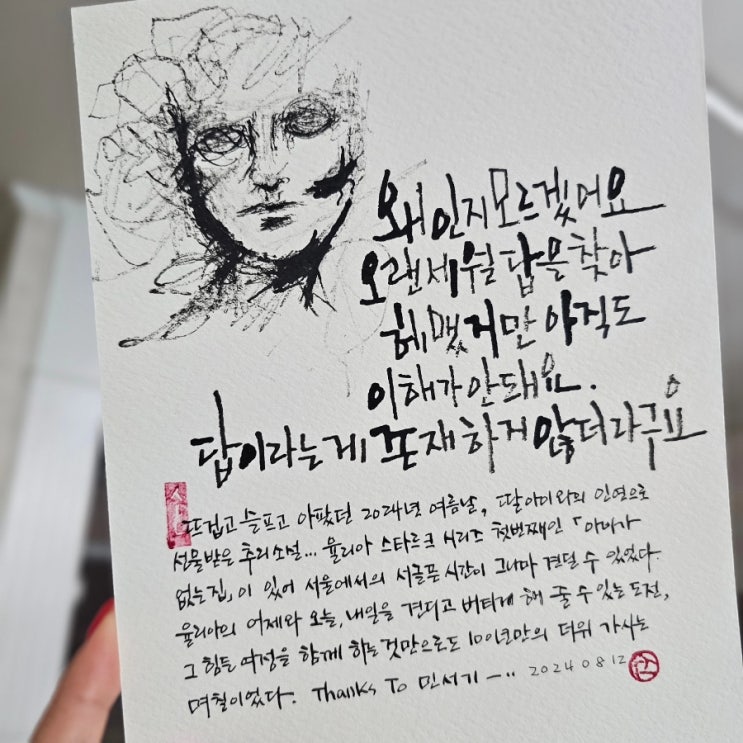 왜인지모르겠어요
오랜세월 답을찾아
헤맸지만 아직도
이해가 안돼요.
답이라는게 존재하지 않더라구요
뜨겁고 슬프고 아팠던 2024년 여름날, 딸아이와의 인연으로
선물받은 추리소설... 율리아 스타르크 시리즈 첫번째인 「
없는집」이 있어 서울에서의 서글픈 시간이 그나마 견딜 수 있었다.
율리아의 어제와 오늘, 내일을 견디고 버티게 해 줄 수 있는 도전,
그 힘든 여정을 함께 하는것만으로도 더위 가시는
며칠이었다. Thanks To 민서기 — .. 2024 08 12